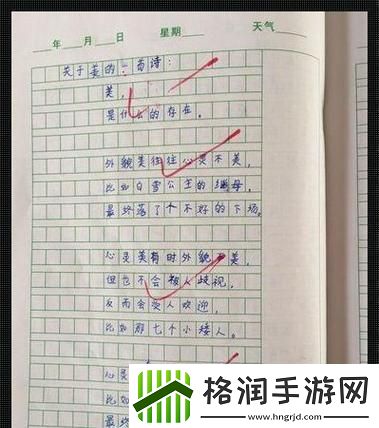 年 月 日 星期 天气
关于美的一首诗:
美,
是什么的存在。
外貌美往往心灵不美,
比如白雪公主的继母,
最终落了个不好的下场。
心灵美有时外貌不美,
但也不会被人歧视,
反而会受人欢迎,
比如那七个小矮人。
心灵
比如
最终
格润手游网
www.hngrjd.com